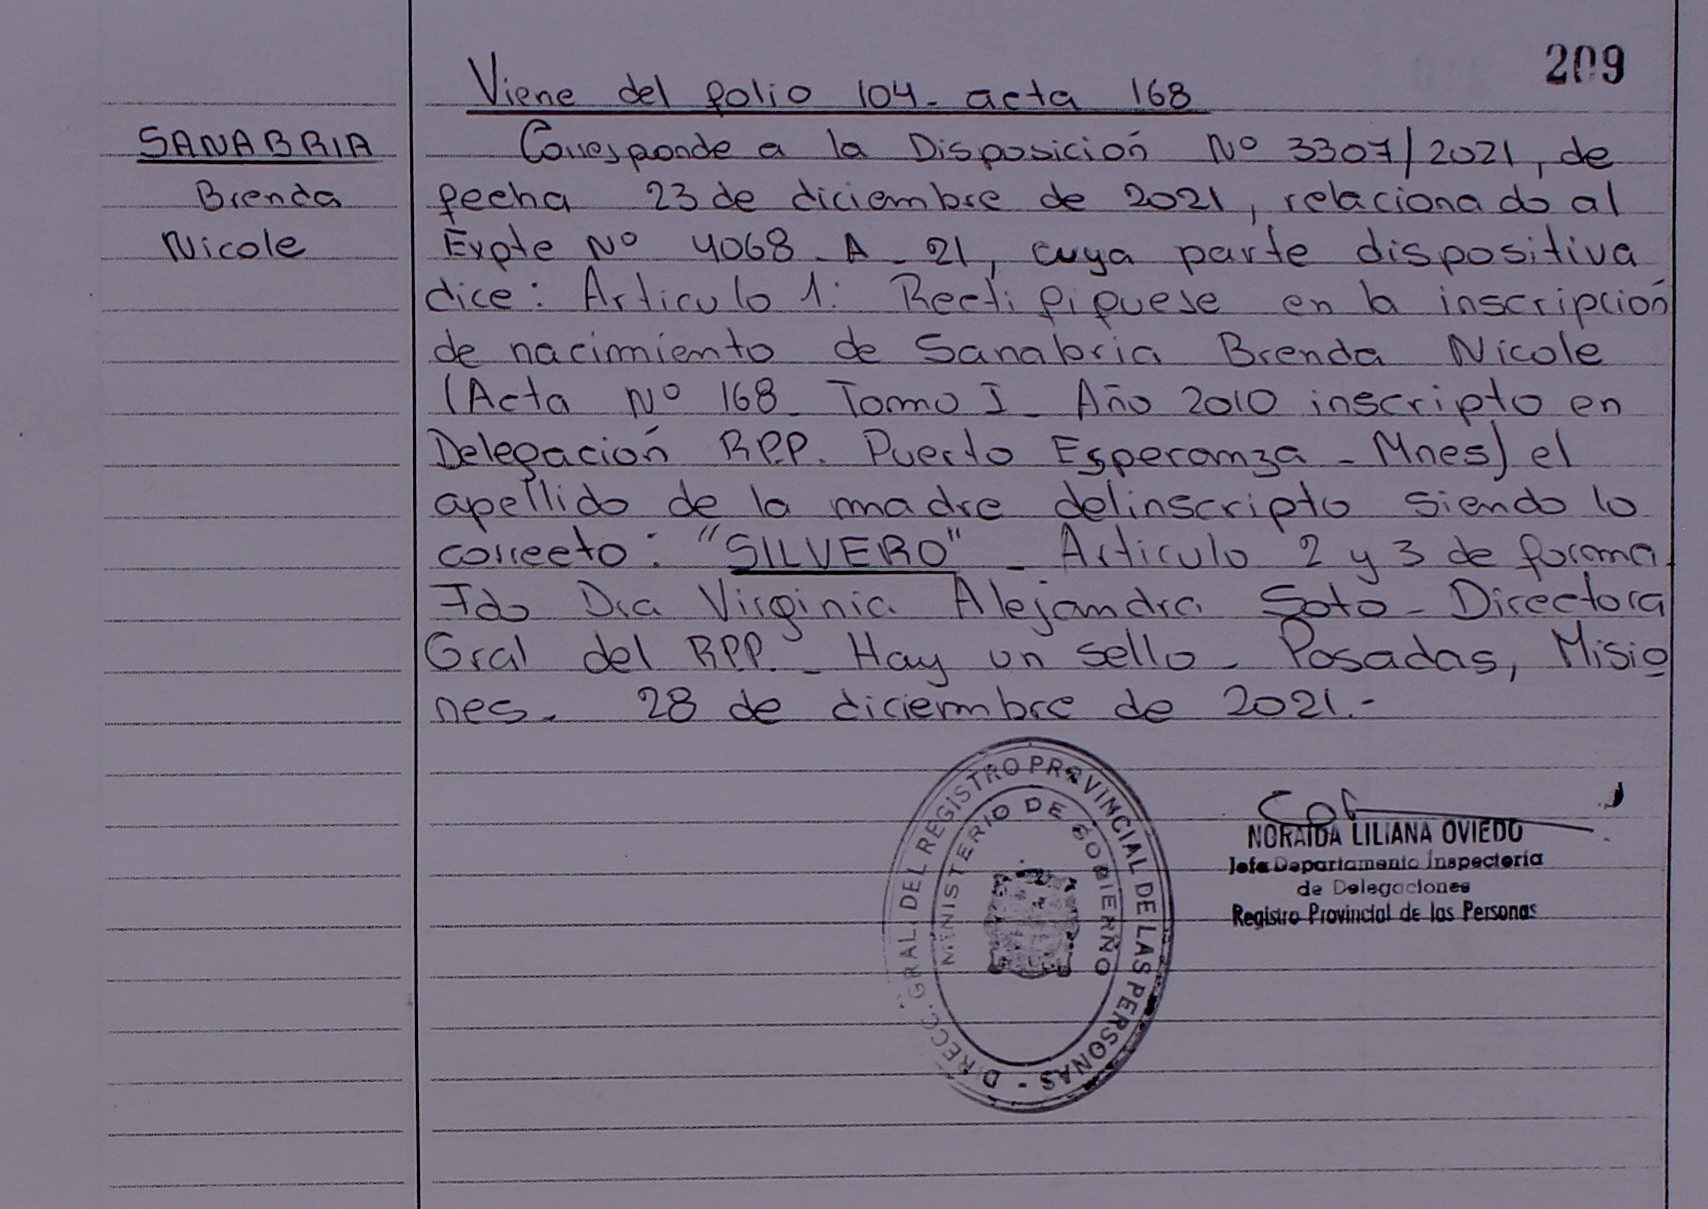 209
Viene del folio 104- acta 168
SANABRIA
Brenda
Nicole
Corresponde a la Disposición Nº 3307/2021, de
fecha 23 de diciembre de 2021, relacionado al
Expte Nº 4068-A-21, cuya parte dispositiva
dice: Articulo 1: Rectifiquese en la inscripción
de nacimiento de Sanabria Brenda Nicole
(Acta Nº 168- Tomo I- Año 2010 inscripto en
Delegación RPP. Puerto Esperanza - Mnes) el
apellido de la madre del inscripto siendo lo
correcto: "SILVERO" - Articulo 2 y 3 de forma.
Fdo Dra Virginia Alejandra Soto - Directora
Gral del RPP. - Hay un sello - Posadas, Misio
nes - 28 de diciembre de 2021.-
DIRECC. GRAL. DEL REGISTRO PROVINCIAL DE LAS PERSONAS -
MINISTERIO DE GOBIERNO
NORAIDA LILIANA OVIEDO
Jefa Departamento Inspectoría
de Delegaciones
Registro Provincial de las Personas